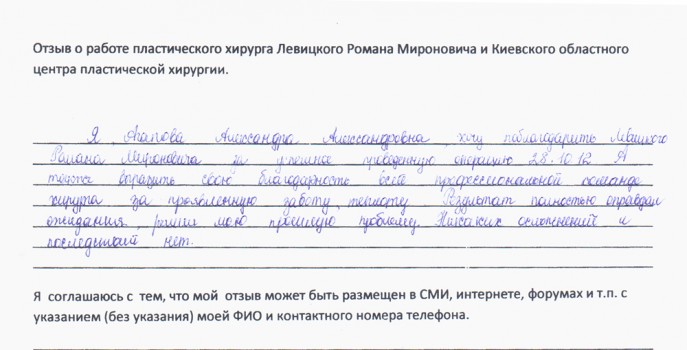 Отзыв о работе пластического хирурга Левицкого Романа Мироновича и Киевского областного
центра пластической хирургии.
Я Агапова Александра Александровна хочу поблагодарить Левицкого
Романа Мироновича за успешное проведенную операцию 28.10.12 Я
также выразить свою благодарность всей профессиональной команде
хирурга за проявленную заботу, теплоту. Результат полностью оправдал
ожидания, решил мою прошлую проблему. Никаких осложнений и
последствий нет.
Я соглашаюсь с тем, что мой отзыв может быть размещен в СМИ, интернете, форумах и т.п. с
указанием (без указания) моей ФИО и контактного номера телефона.